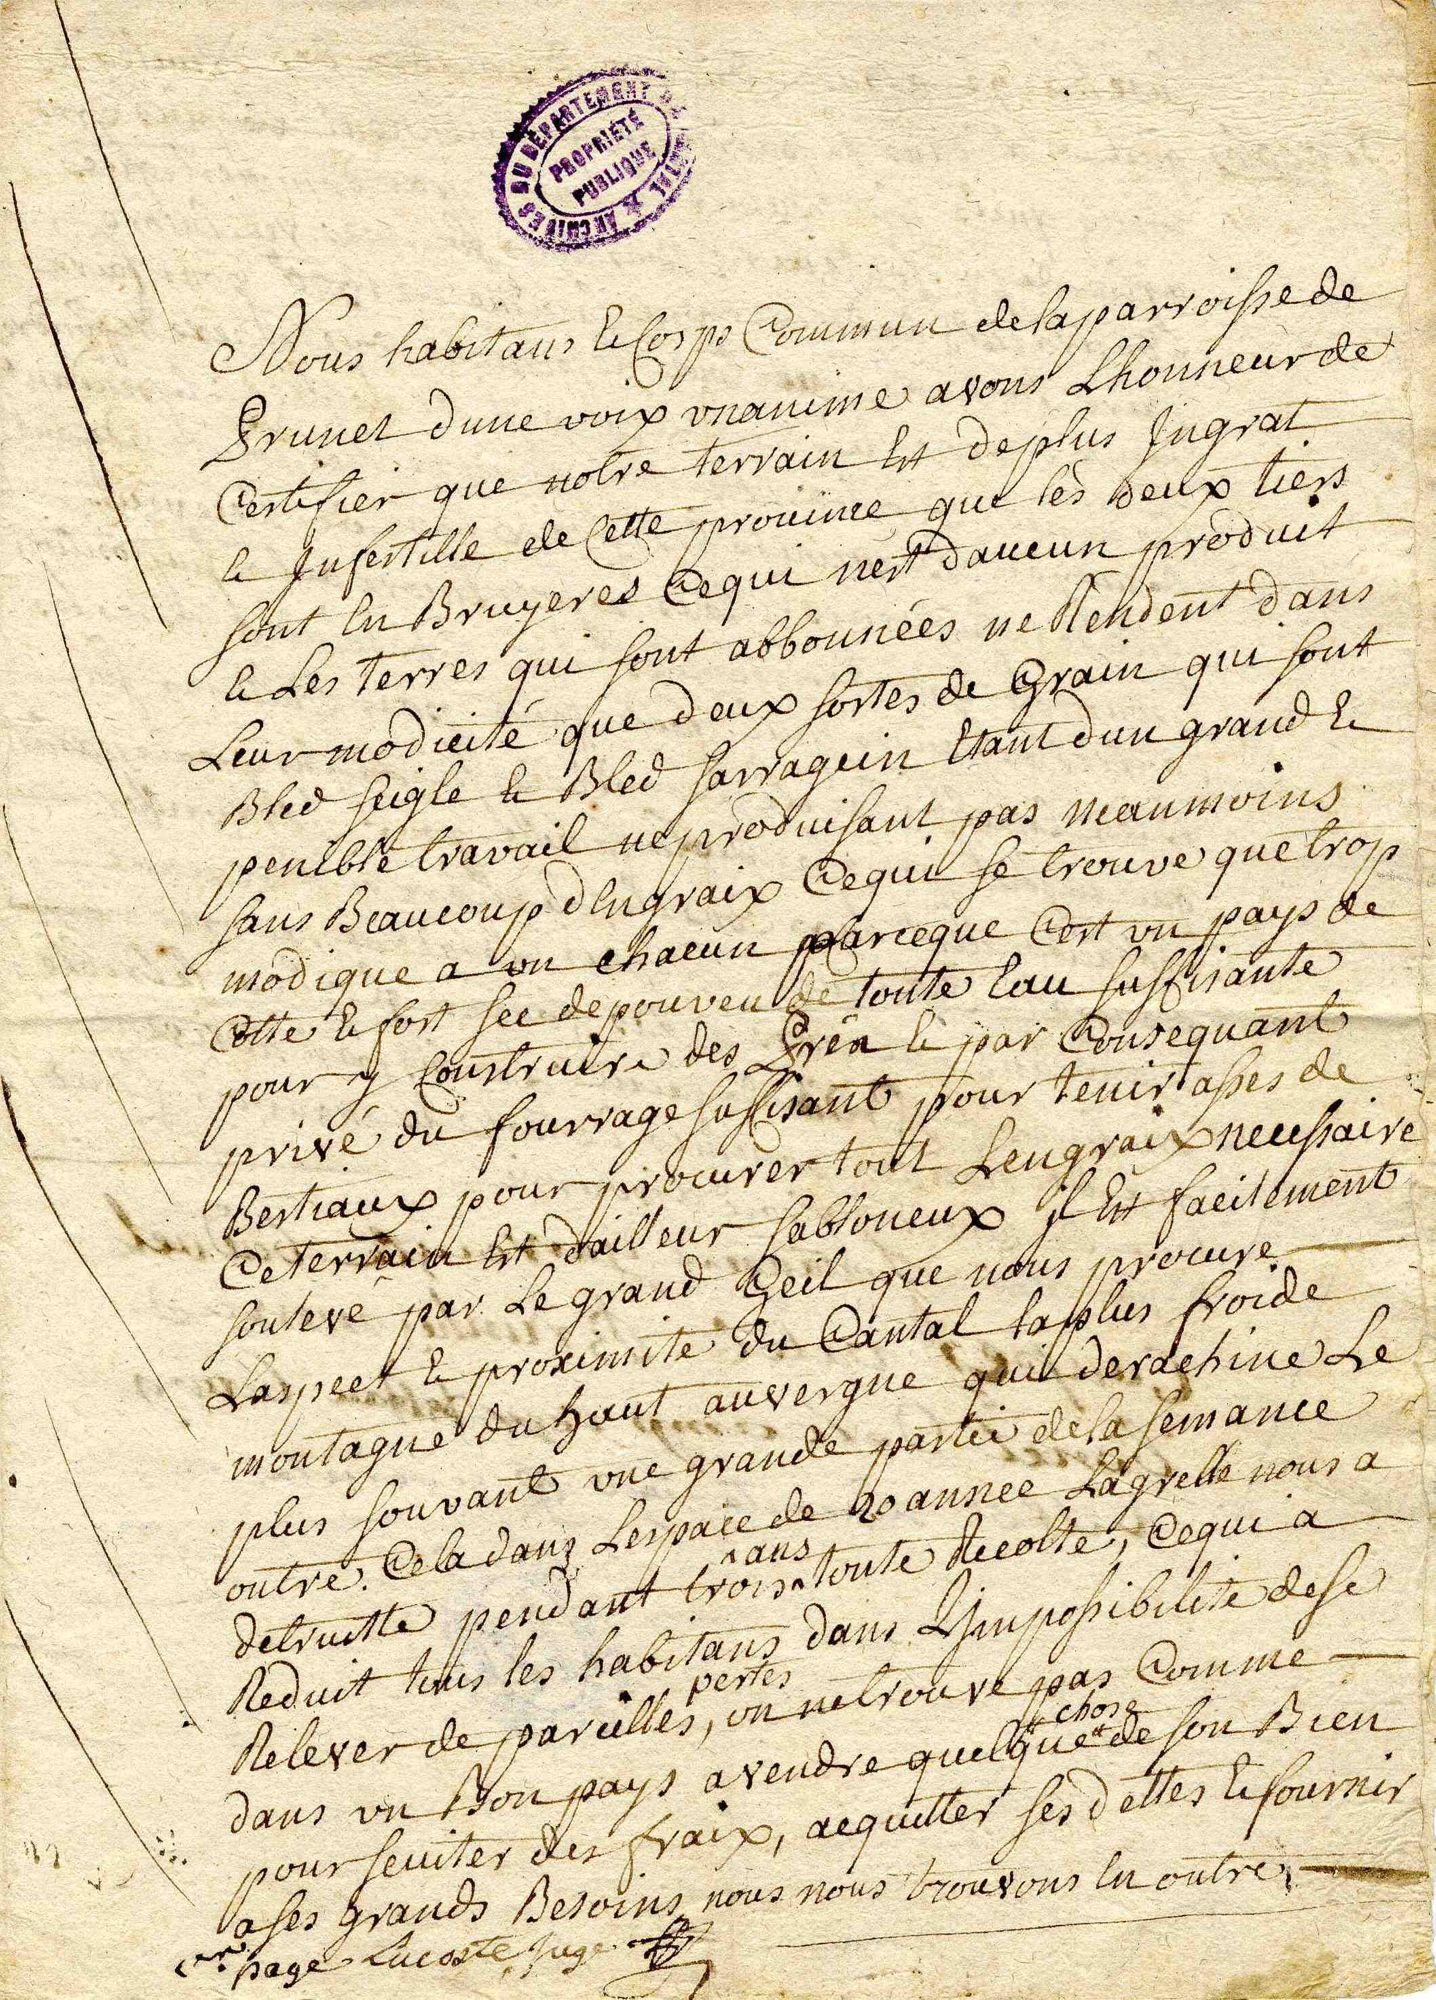 ARCHIVES DU DÉPARTEMENT DU CANTAL
PROPRIÉTÉ
PUBLIQUE
Nous habitans & Corps Commun de la parroisse de
Prunet dune voix unanime avons Lhonneur de
Certifier que notre terrain Est de plus Ingrat
& Infertille de Cette province que les deux tiers
sont En Bruyeres Ce qui nest daucun produit
& Les terres qui sont abbonnées ne Rendent dans
Leur modicité que deux sortes de Grain qui sont
Bled seigle & Bled sarragein Etant dun grand &
penible travail ne produisant pas neanmoins
sans Beaucoup dEngraix Ce qui se trouve que trop
modique a un chacun parceque Cest un pays de
Cotte & fort sec depouveu de toute Eau suffisante
pour y Construire des Prés & par Consequant
privé du fourrage suffisant pour tenir asses de
Bestiaux pour procurer tout Lengraix necessaire
Ce terrain Est dailleur sabloneux jl Est facilement
soulevé par Le grand Geil que nous procure
Laspect & proximité du Cantal la plus froide
montagne du haut auvergne qui derachine Le
plus souvant une grande partie de la semance
outre Cela dans Lespace de 20 annee La grelle nous a
detruitte pendant trois ans toute Recolte, Ce qui a
Reduit tous les habitans dans Limpossibilité de se
Relever de pareilles pertes, on ne trouve pas Comme
dans un Bon pays a vendre quelque chose de son Bien
pour seviter des fraix, acquitter ses dettes & fournir
a ses grands Besoins nous nous trouvons En outre
page Lacoste Juge